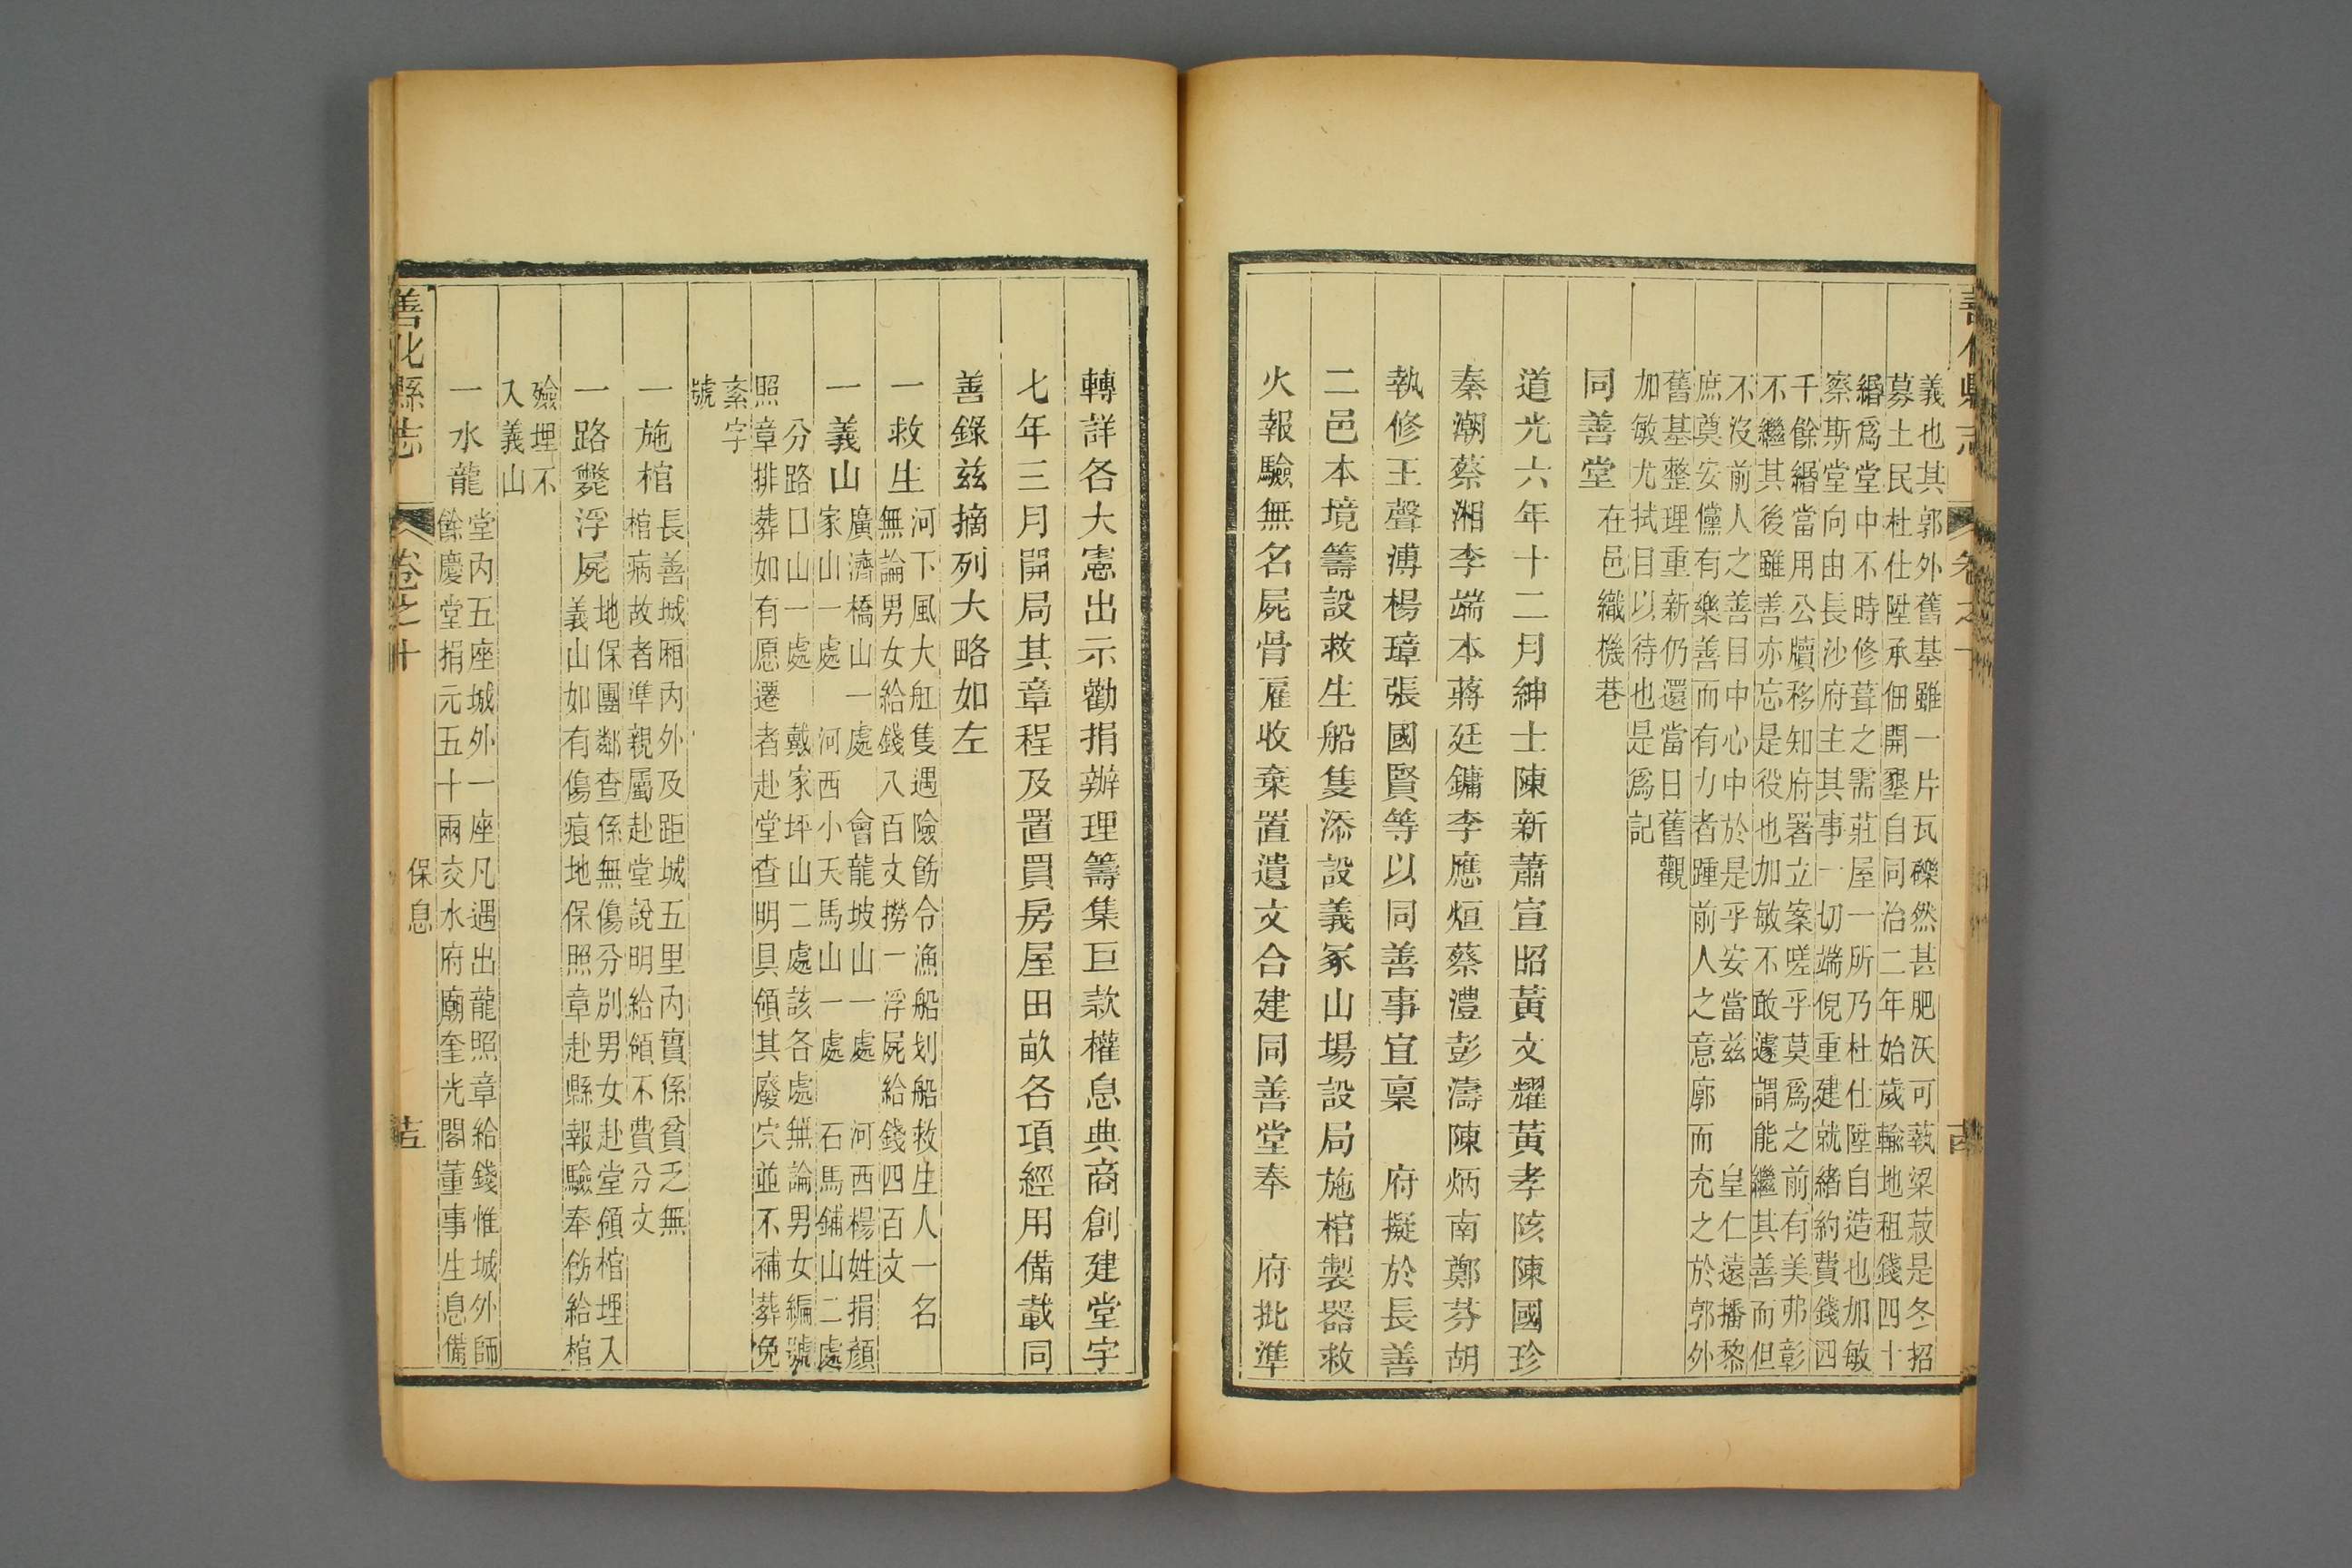 義也其郭外舊基雖一片瓦礫然甚肥沃可蓺梁菽是冬招
募土民杜仕陞承佃開墾自同治二年始歲輸地租錢四十
緡爲堂中不時修葺之需莊屋一所乃杜仕陞自造也加敏
察斯堂向由長沙府主其事一切端倪重建就緒約費錢四
千餘緡當用公牘移知府署立案嗟乎莫爲之前有美弗彰
不繼其後雖善亦忘是役也加敏不敢遽謂能繼其善而但
不沒前人之善目中心中於是乎安當茲 皇仁遠播黎
庶奠安儻有樂善而有力者踵前人之意廓而充之於郭外
舊基整理重新仍還當日舊觀
加敏尤拭目以待也是爲記
同善堂 在邑織機巷
道光六年十二月紳士陳新蕭宣昭黃文耀黃孝陔陳國珍
秦潮蔡湘李端本蔣廷鏞李應烜蔡澧彭濤陳炳南鄭芬胡
執修王聲溥楊璋張國賢等以同善事宜稟 府擬於長善
二邑本境籌設救生船隻添設義冢山場設局施棺製器救
火報驗無名屍骨雇收棄置遺文合建同善堂奉 府批準
轉詳各大憲出示勸捐辦理籌集巨款權息典商創建堂宇
七年三月開局其章程及置買房屋田畝各項經用備載同
善錄茲摘列大略如左
一救生 河下風大舡隻遇險飭令漁船划船救生人一名
無論男女給錢八百文撈一浮屍給錢四百文
一義山 廣濟橋山一處 會龍坡山一處 河西楊姓捐顏
家山一處 河西小天馬山一處 石馬鋪山二處
分路口山一處 戴家坪山二處該各處無論男女編號
照章排葬如有愿遷者赴堂查明具領其廢穴並不補葬免
紊字
號
一施棺 長善城廂內外及距城五里內實係貧乏無
棺病故者準親屬赴堂說明給領不費分文
一路斃浮屍 地保團鄰查係無傷分別男女赴堂領棺埋入
義山如有傷痕地保照章赴縣報驗奉飭給棺
殮埋不
入義山
一水龍 堂內五座城外一座凡遇出龍照章給錢惟城外師
餘慶堂捐元五十兩交水府廟奎光閣董事生息備
善化縣志 卷之十 保息 十五